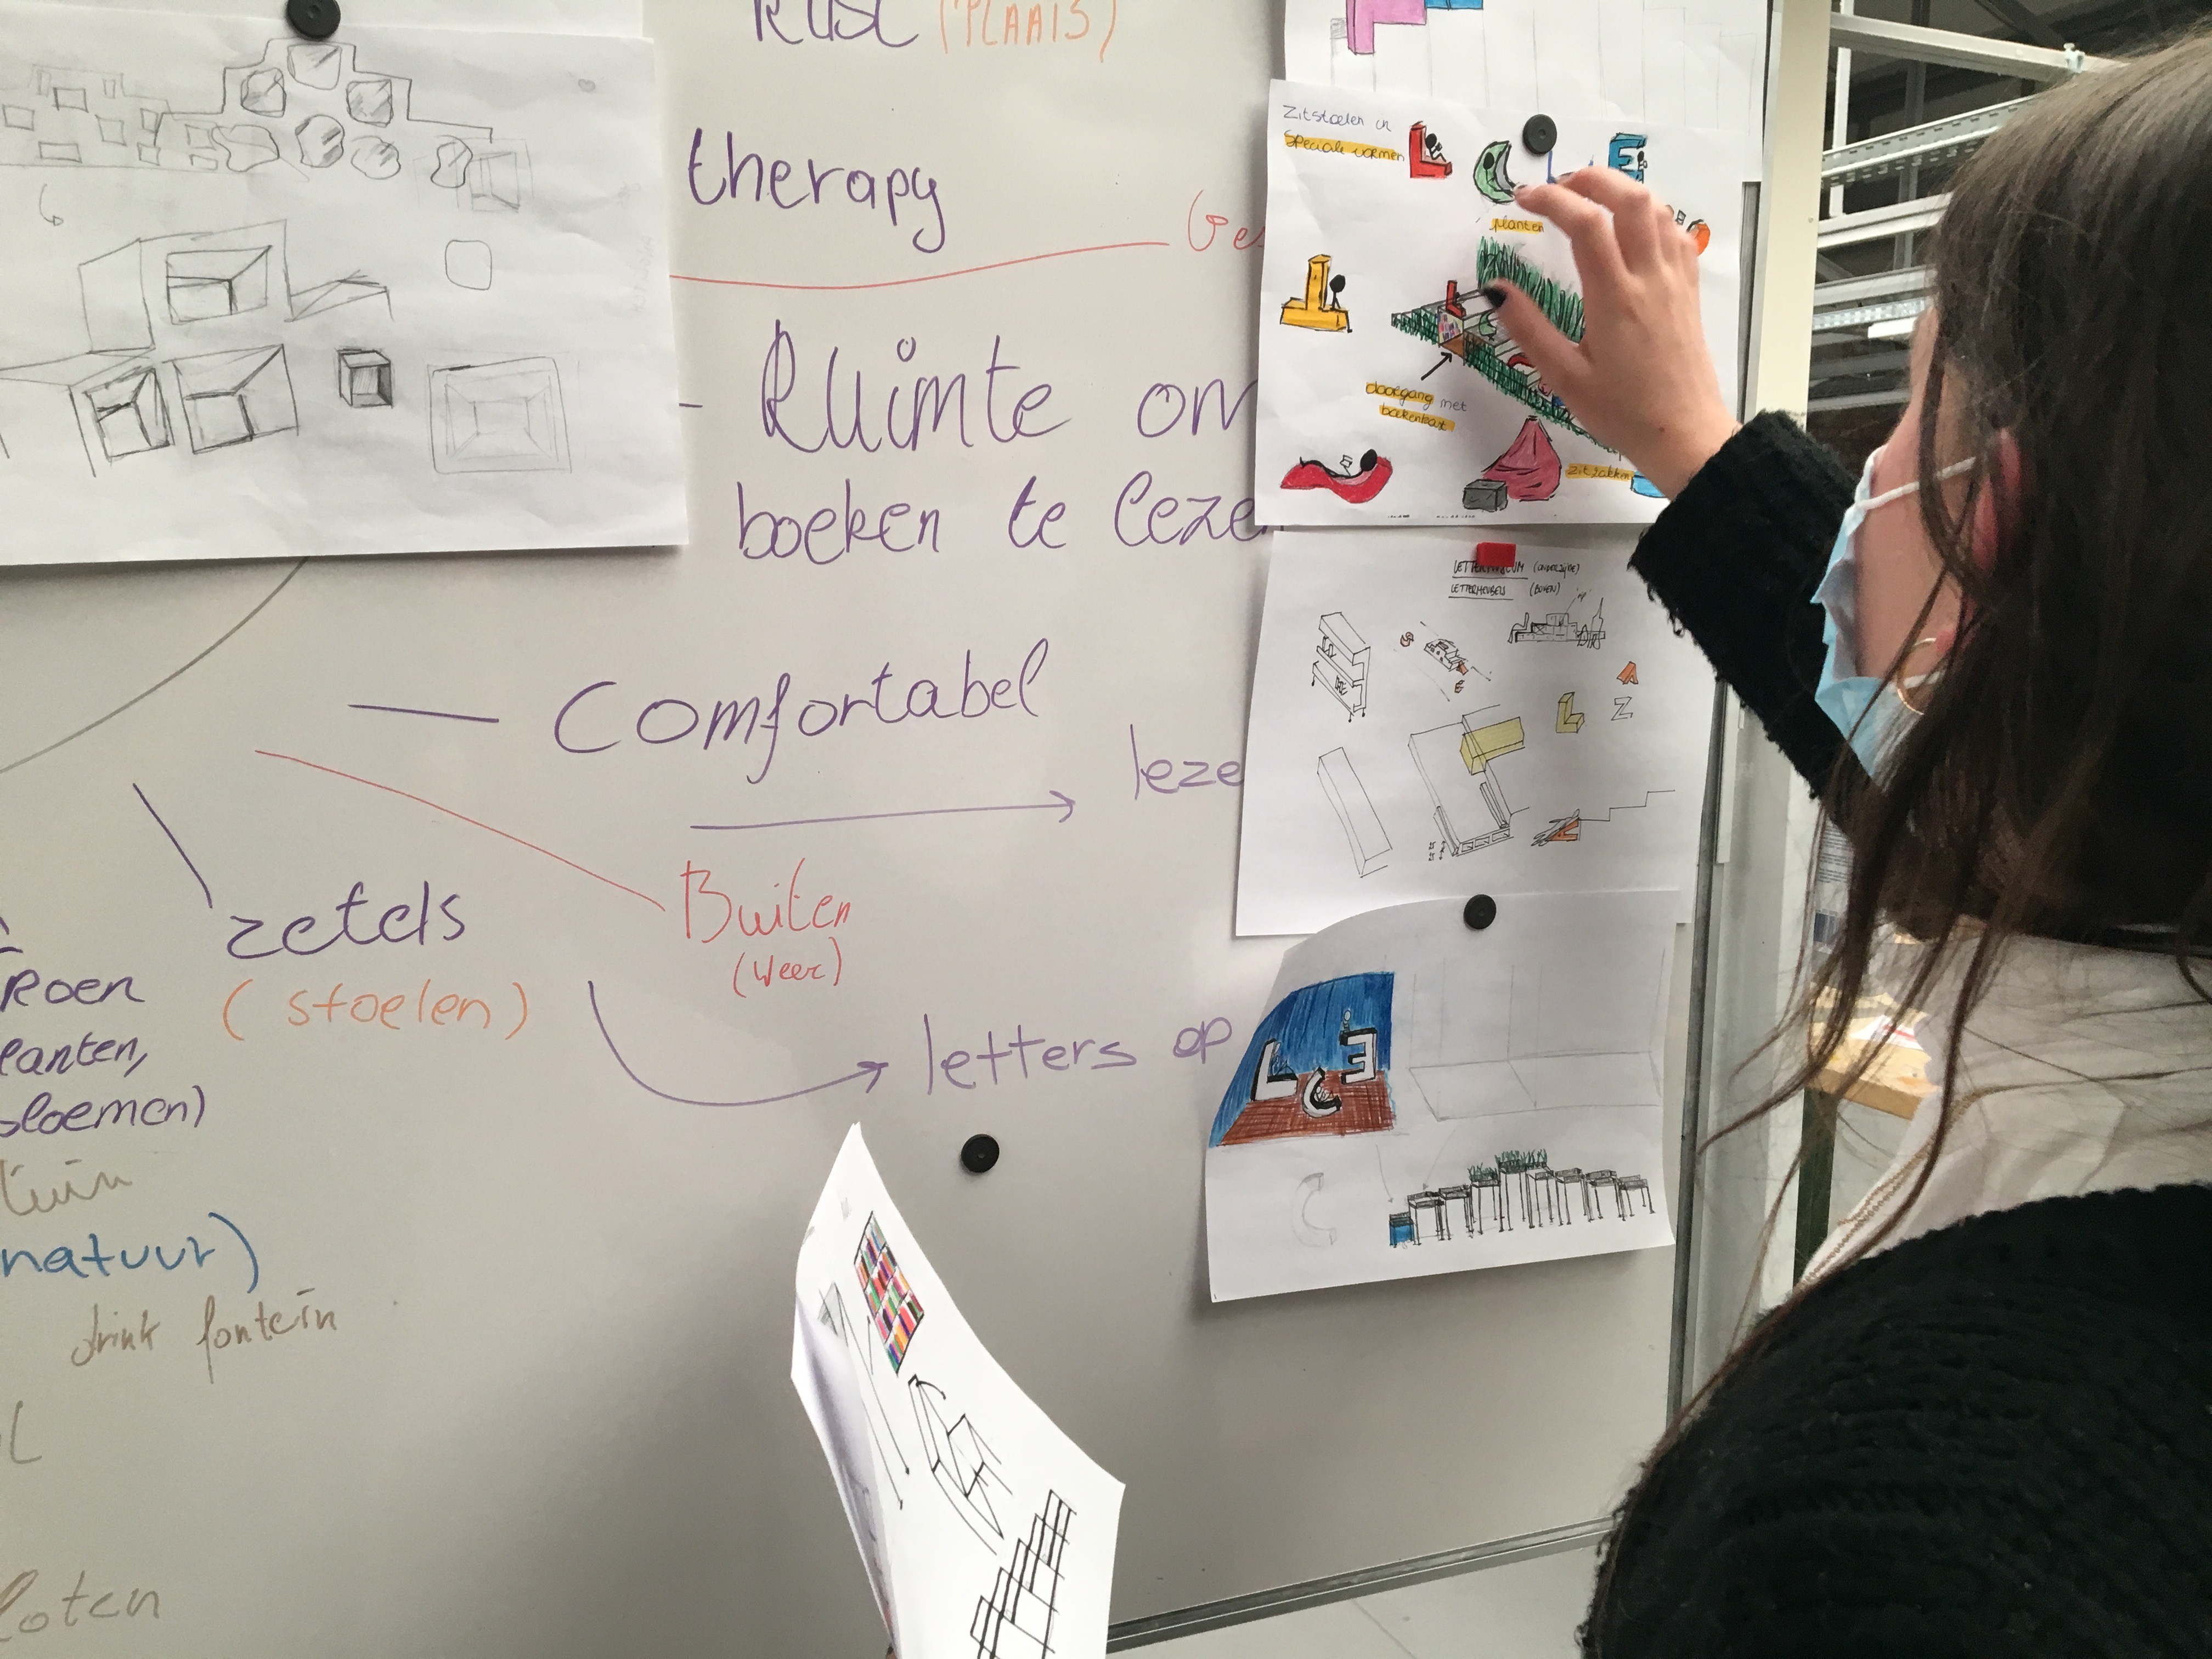 Rust (PLAATS)
therapy
Ruimte om
boeken te lezen
Comfortabel
leze
zetels
(stoelen)
Buiten
(weer)
letters op
ROEN
lanten,
bloemen)
tuin
natuur)
drink fontein
loten
Zitstoelen in
speciale vormen
planten
doorgang met
boekenkast
zitzakken
LETTERMUSEUM (ONDERZIJDE)
LETTERMEUBELS (BOVEN)